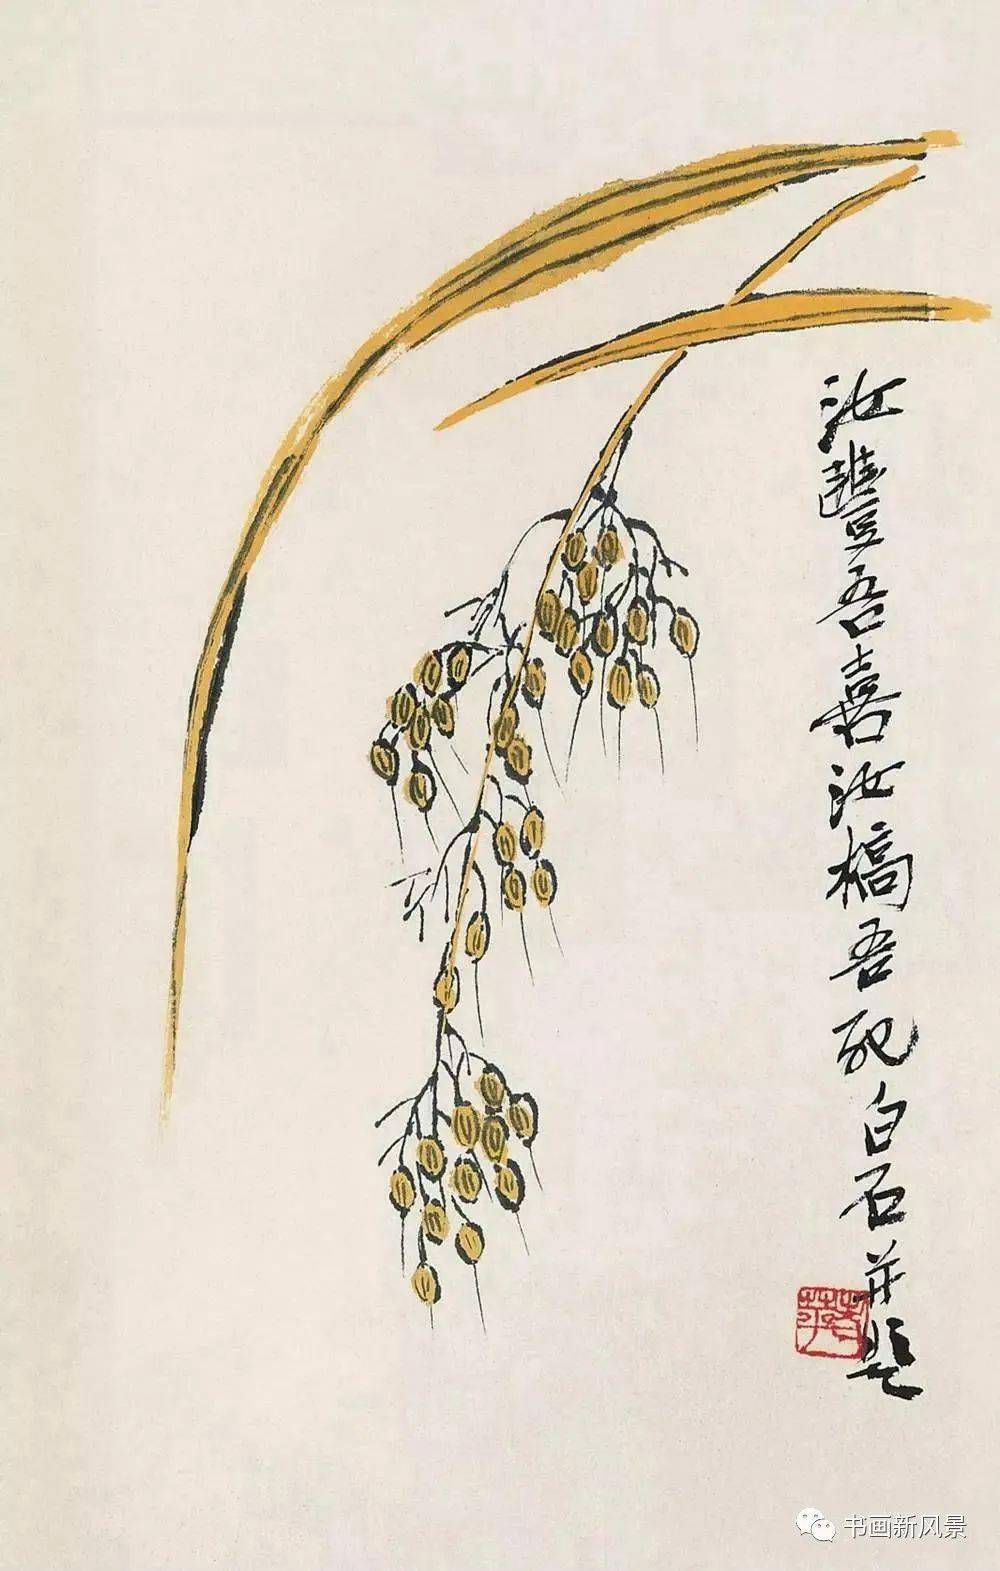 汝豐吾喜汝槁吾死白石並題
书画新风景